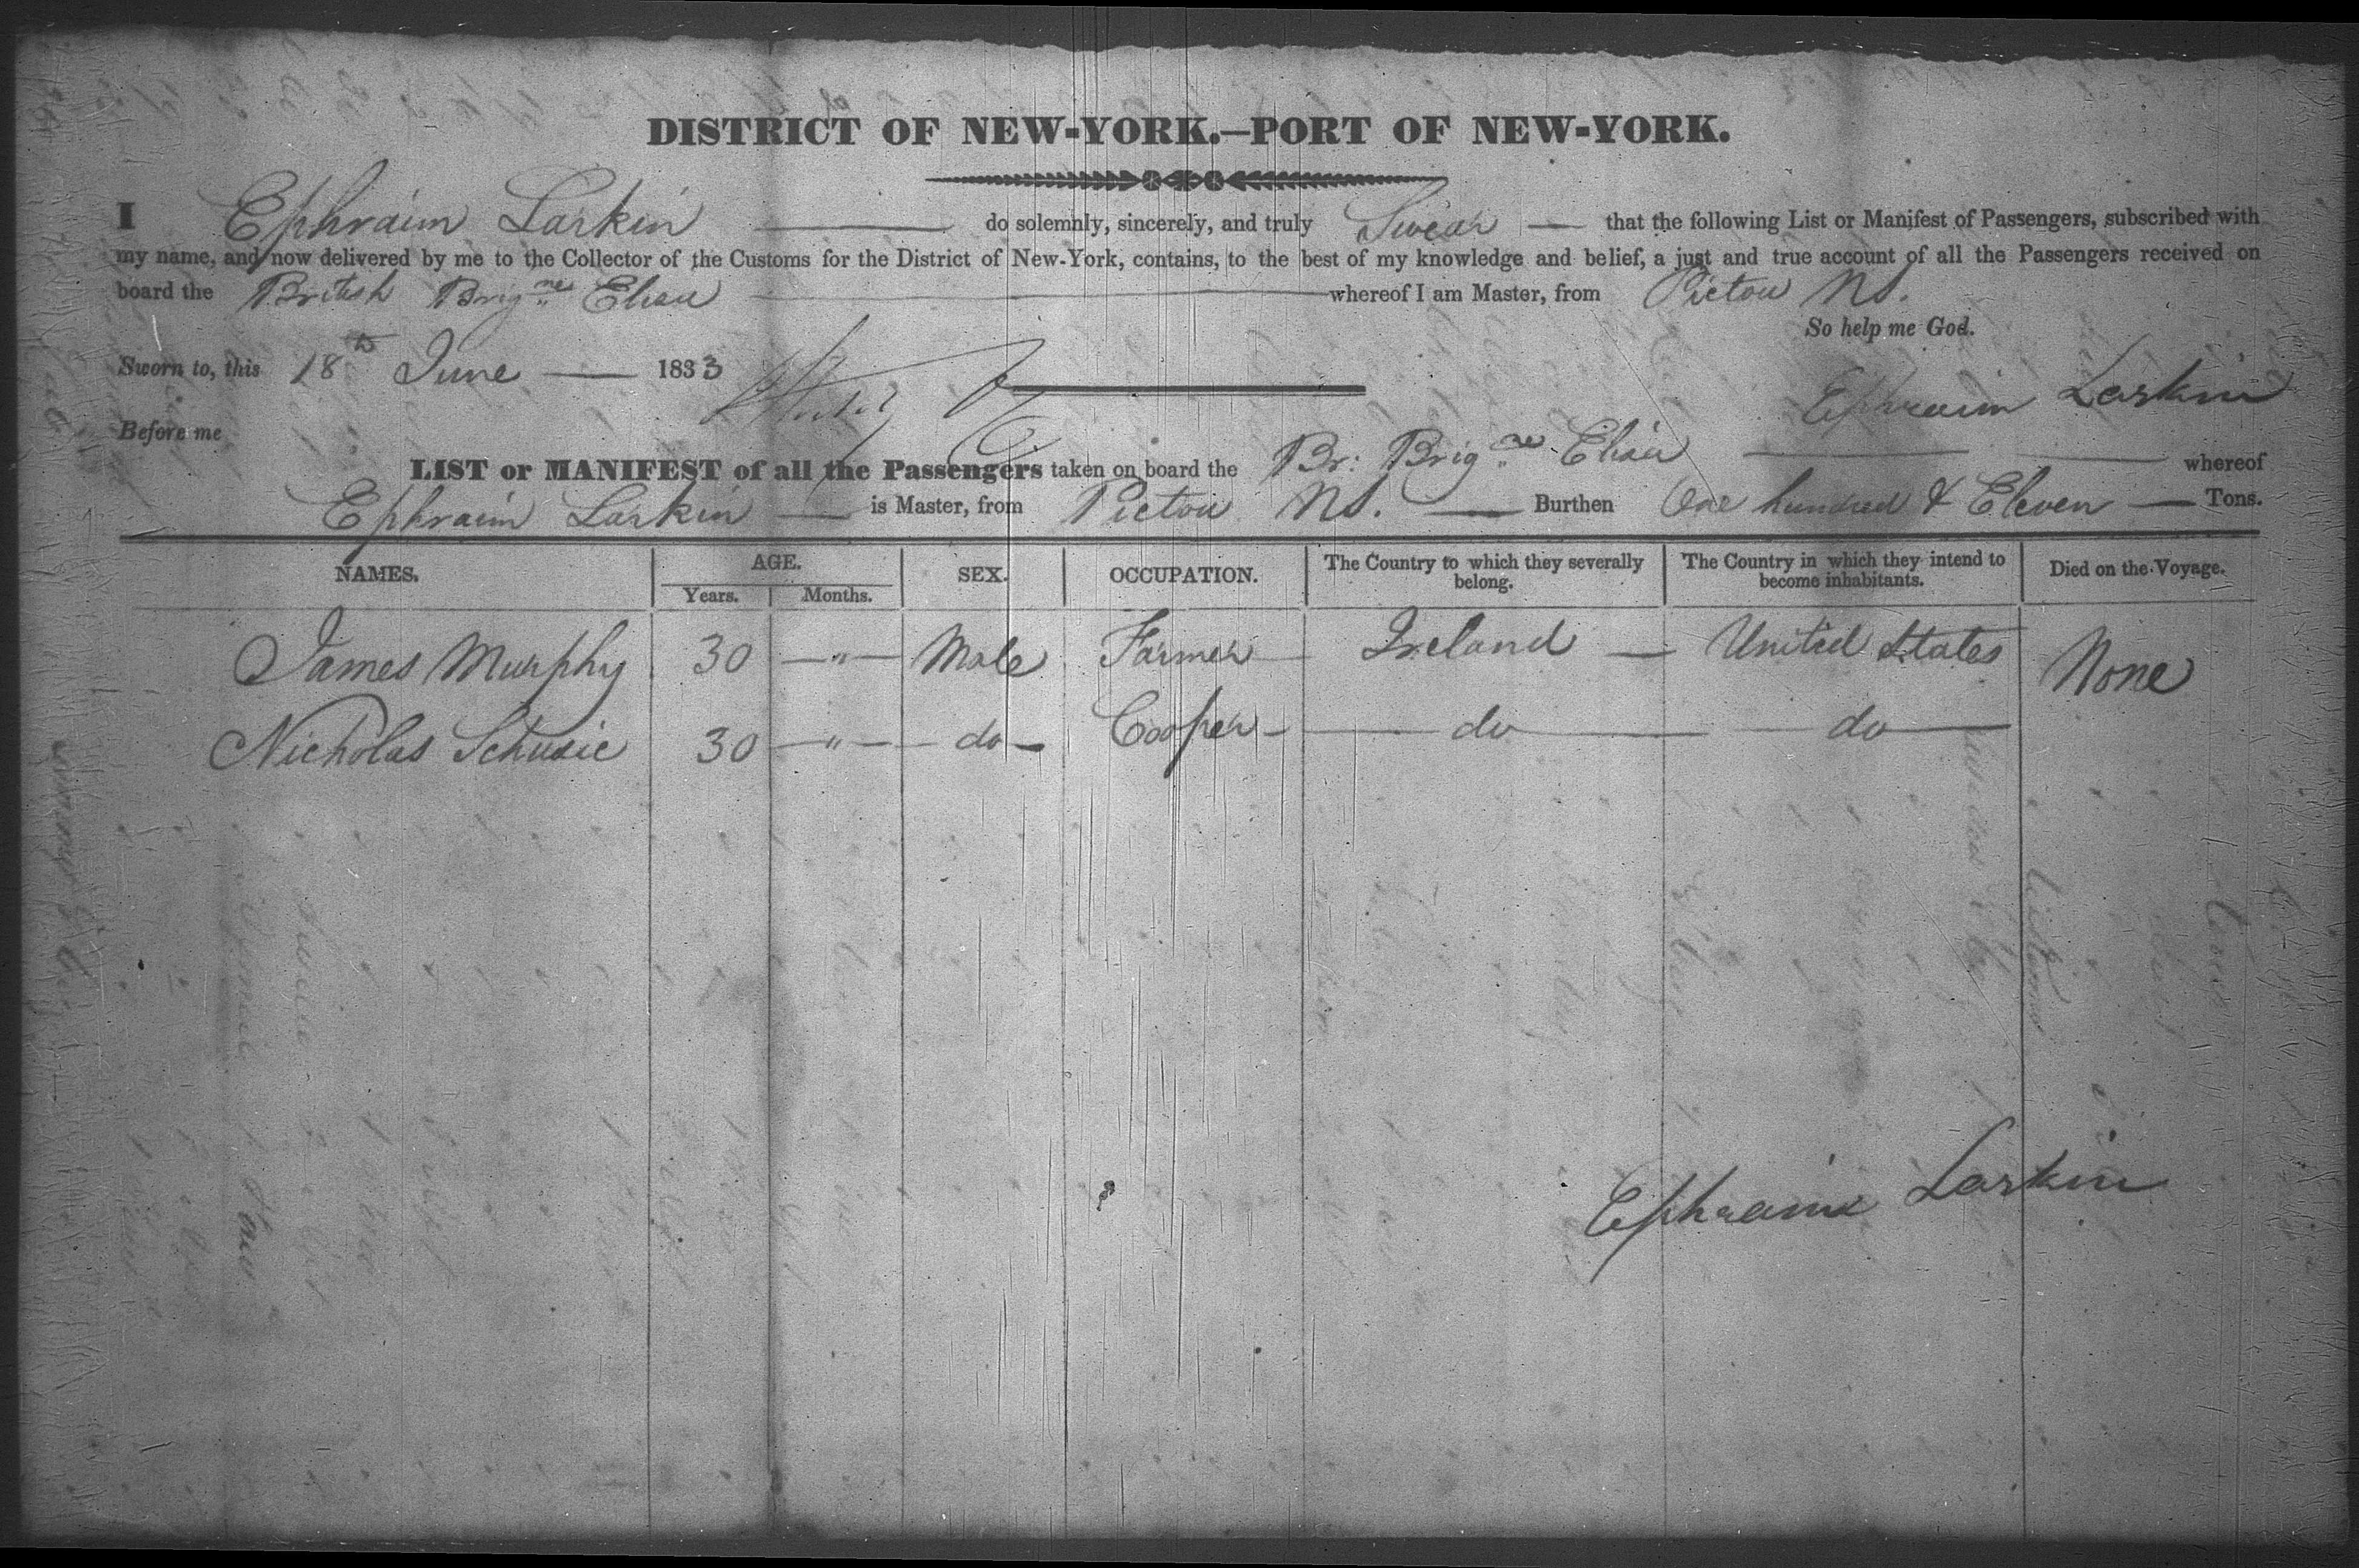 DISTRICT OF NEW-YORK.—PORT OF NEW-YORK.
I Ephraim Larkin do solemnly, sincerely, and truly Swear that the following List or Manifest of Passengers, subscribed with
my name, and now delivered by me to the Collector of the Customs for the District of New-York, contains, to the best of my knowledge and belief, a just and true account of all the Passengers received on
board the British Brigne whereof I am Master, from Pictou NS.
So help me God.
Sworn to, this 18th June 1833
Ephraim Larkin
Before me
LIST or MANIFEST of all the Passengers taken on board the Br: Brigne whereof
Ephraim Larkin is Master, from Pictou NS. Burthen One hundred & Eleven Tons.
NAMES. AGE. Years. Months. SEX. OCCUPATION. The Country to which they severally belong. The Country in which they intend to become inhabitants. Died on the Voyage.
James Murphy 30 " Male Farmer Ireland United States None
Nicholas 30 " do Cooper do do
Ephraim Larkin